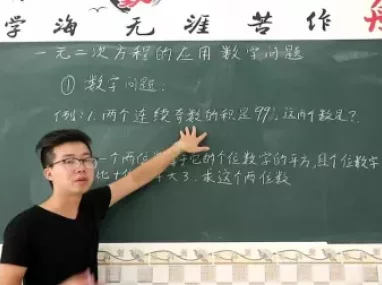 学海无涯苦作舟
一元二次方程的应用数字问题
① 数字问题:
例:1.两个连续奇数的积是99,这两个数是?
一个两位 等于它的个位数字的平方,且个位数字
比十位 大3.求这个两位数